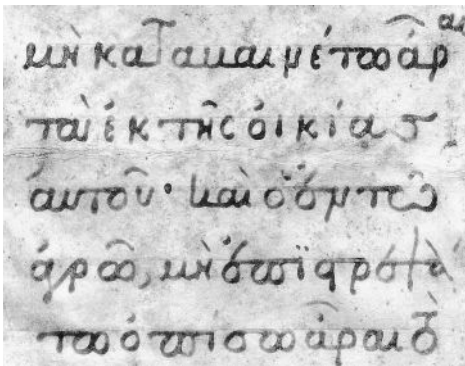 μὴ καταβαινέτω ἆραι
τὰ ἐκ τῆς οἰκίας
αὐτοῦ· καὶ ὁ ἐν τῶ
ἀγρῶ, μὴ ἐπϊστρεψά
τω ὀπίσω ἆραι